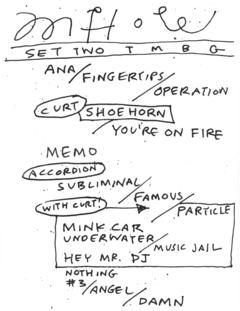 MHole
SET TWO TMBG
ANA/FINGERTIPS/OPERATION
CURT SHOEHORN/YOU'RE ON FIRE
MEMO
ACCORDION
SUBLIMINAL/FAMOUS/PARTICLE
WITH CURT!
MINK CAR
UNDERWATER/MUSIC JAIL
HEY MR. DJ
NOTHING
#3/ANGEL/DAMN